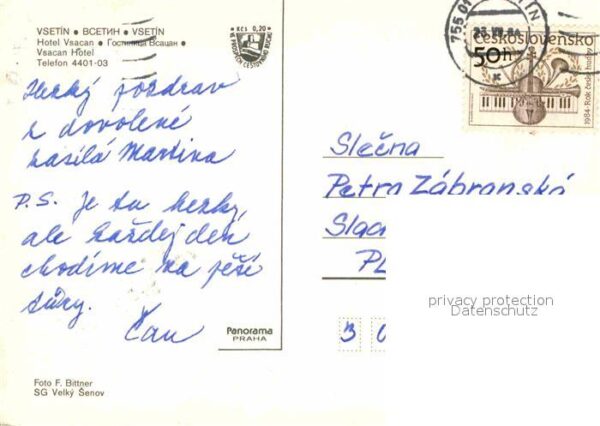 VSETÍN • ВСЕТИН • VSETÍN
Hotel Vsacan • Гостиница Всацан •
Vsacan Hotel
Telefon 4401-03
Kčs 0,20
Hezký pozdrav
z dovolené
zasílá Martina
P.S. Je tu hezky,
ale každej den
chodíme na pěší
túry.
Čau
Panorama
PRAHA
Foto F. Bittner
SG Velký Šenov
755 01
ÍN
Československo
50h
1984-Rok české hudby
Slečna
Petra Zábranská
privacy protection
Datenschutz
3